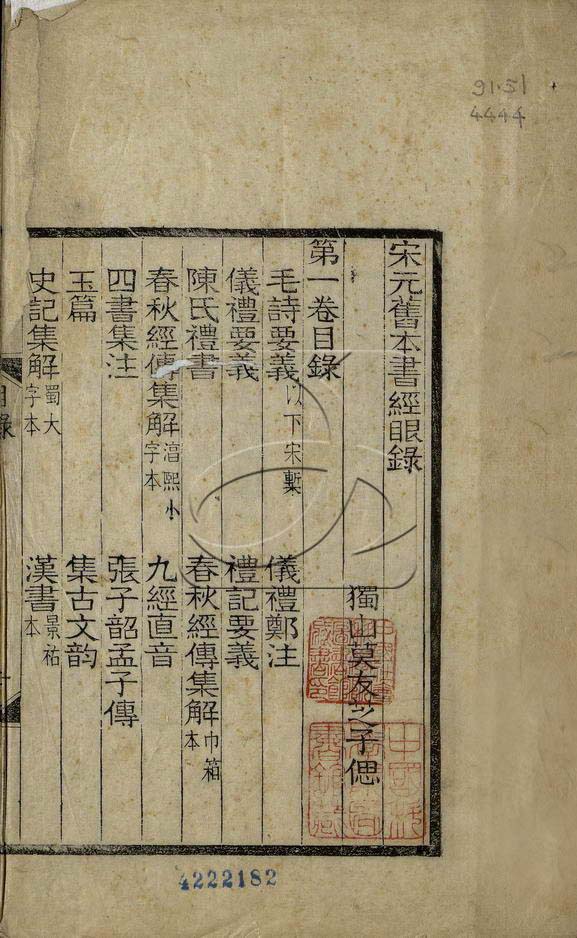 91.51
4444
宋元舊本書經眼錄
獨山莫友芝子偲
第一卷目錄
毛詩要義以下宋槧 儀禮鄭注
儀禮要義 禮記要義
陳氏禮書 春秋經傳集解巾箱本
春秋經傳集解湻熙小字本 九經直音
四書集注 張子韶孟子傳
玉篇 集古文韵
史記集解蜀大字本 漢書景祐本
4222182